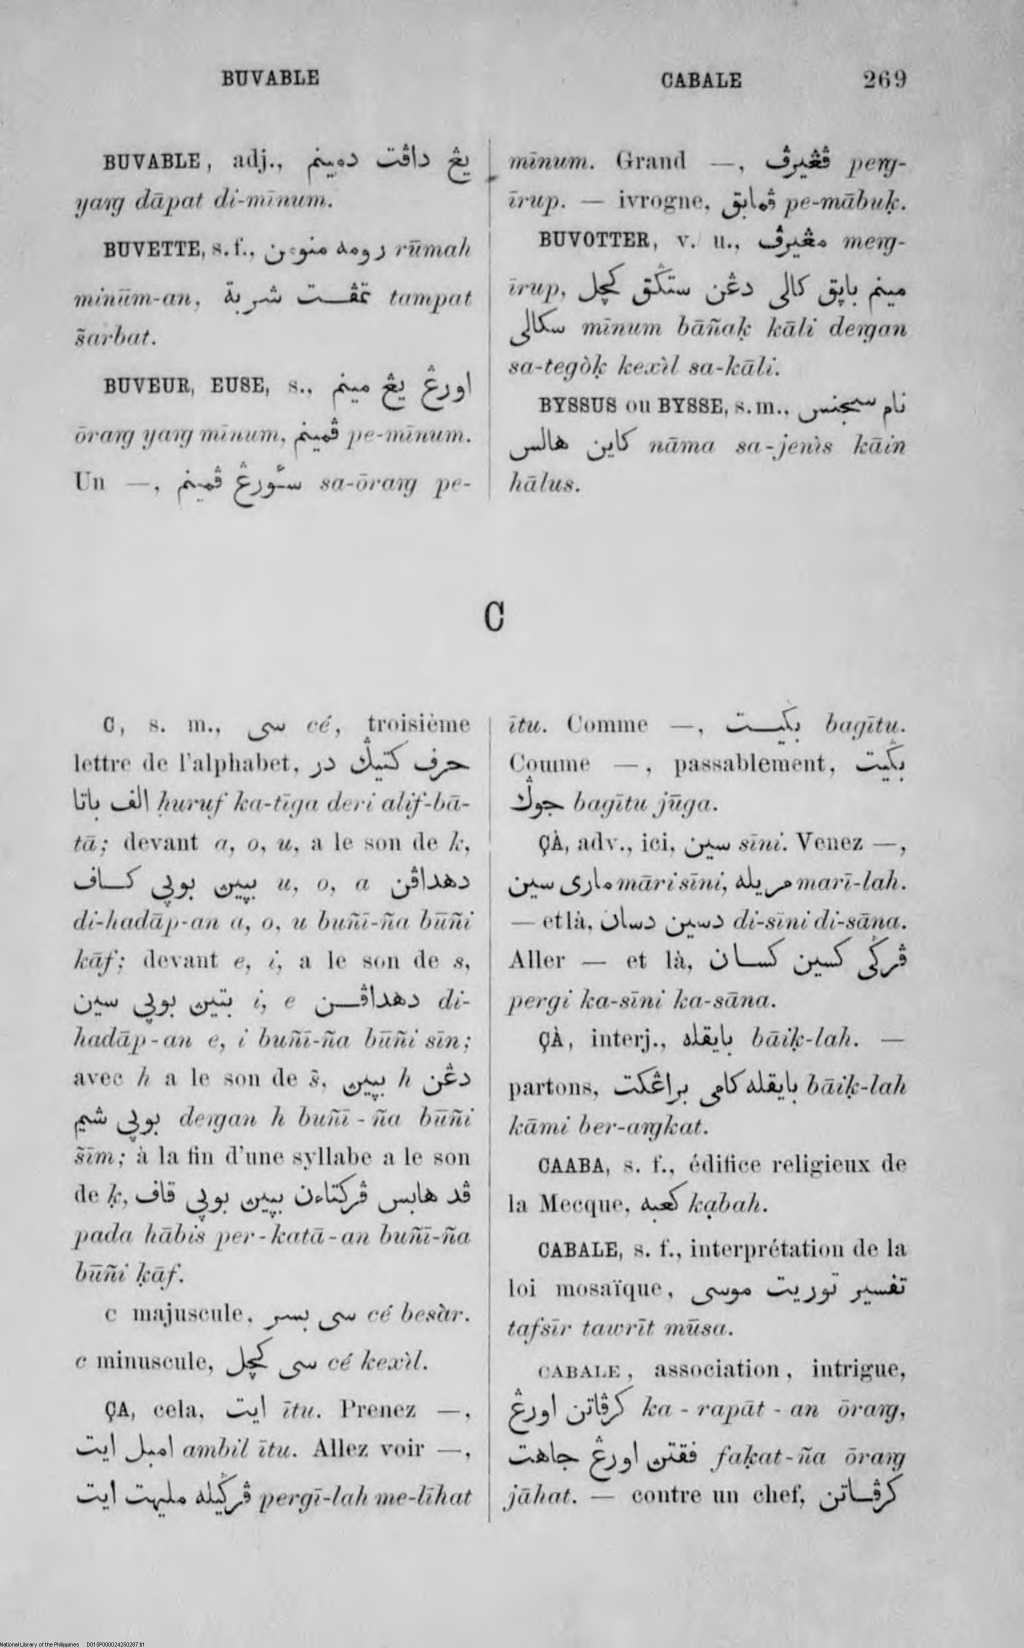 BUVABLE
CABALE 269
BUVABLE, adj., يڠ داڤت دمينم
yaŋ dāpat di-mīnum.
BUVETTE, s. f., رومه منومن rūmah
minūm-an, تمڤت شربة tampat
s̃arbat.
BUVEUR, EUSE, s., اورڠ يڠ مينم
ōraŋ yaŋ mīnum, ڤمينم pe-mīnum.
Un —, سئورڠ ڤمينم sa-ōraŋ pe-
mīnum. Grand —, ڤڠيرڤ peŋ-
īrup. — ivrogne, ڤمابق pe-mābuḳ.
BUVOTTER, v. n., مڠيرڤ meŋ-
īrup, مينم باڽق كالى دڠن ستڬق كچل
سكالى mīnum bāñaḳ kāli deŋan
sa-tegòḳ kexìl sa-kāli.
BYSSUS ou BYSSE, s. m., نام سجنس
كاين هالس nāma sa-jenìs kāin
hālus.
C
C, s. m., سى cé, troisième
lettre de l'alphabet, حرف كتيڬ در
الف باتا ḥuruf ka-tīga deri alif-bā-
tā; devant a, o, u, a le son de k,
دهداڤن u, o, a بپين بوپي كاف
di-hadāp-an a, o, u buñī-ña būñi
kāf; devant e, i, a le son de s,
دهداڤن i, e بپين بوپي سين di-
hadāp-an e, i buñī-ña būñi sīn;
avec h a le son de s̃, دڠن h بپين
بوپي شيم deŋan h buñī-ña būñi
s̃īm; à la fin d'une syllabe a le son
de ḳ, ڤد هابس ڤركتاءن بپين بوپي قاف
pada hābis per-katā-an buñī-ña
būñi ḳāf.
C majuscule, سى بسر cé besàr.
c minuscule, سى كچل cé kexìl.
ÇA, cela, ايت ītu. Prenez —,
امبل ايت ambil ītu. Allez voir —,
ڤرڬيله مليهت ايت pergī-lah me-līhat
ītu. Comme —, بڬيت bagītu.
Comme —, passablement, بڬيت
جوڬ bagītu jūga.
ÇÀ, adv., ici, سين sīni. Venez —,
مارى سين māri sīni, مريله marī-lah.
— et là, دسين دسان di-sīni di-sāna.
Aller — et là, ڤرڬى كسين كسان
pergi ka-sīni ka-sāna.
ÇÀ, interj., بايقله bāiḳ-lah. —
partons, بايقله كامى براڠكت bāiḳ-lah
kāmi ber-aŋkat.
CAABA, s. f., édifice religieux de
la Mecque, كعبه kạbah.
CABALE, s. f., interprétation de la
loi mosaïque, تفسير توريت موسى
tafsīr tawrīt mūsa.
CABALE, association, intrigue,
كرڤاتن اورڠ ka-rapāt-an ōraŋ,
فقتن اورڠ جاهت faḳat-ña ōraŋ
jāhat. — contre un chef, كرڤاتن
National Library of the Philippines